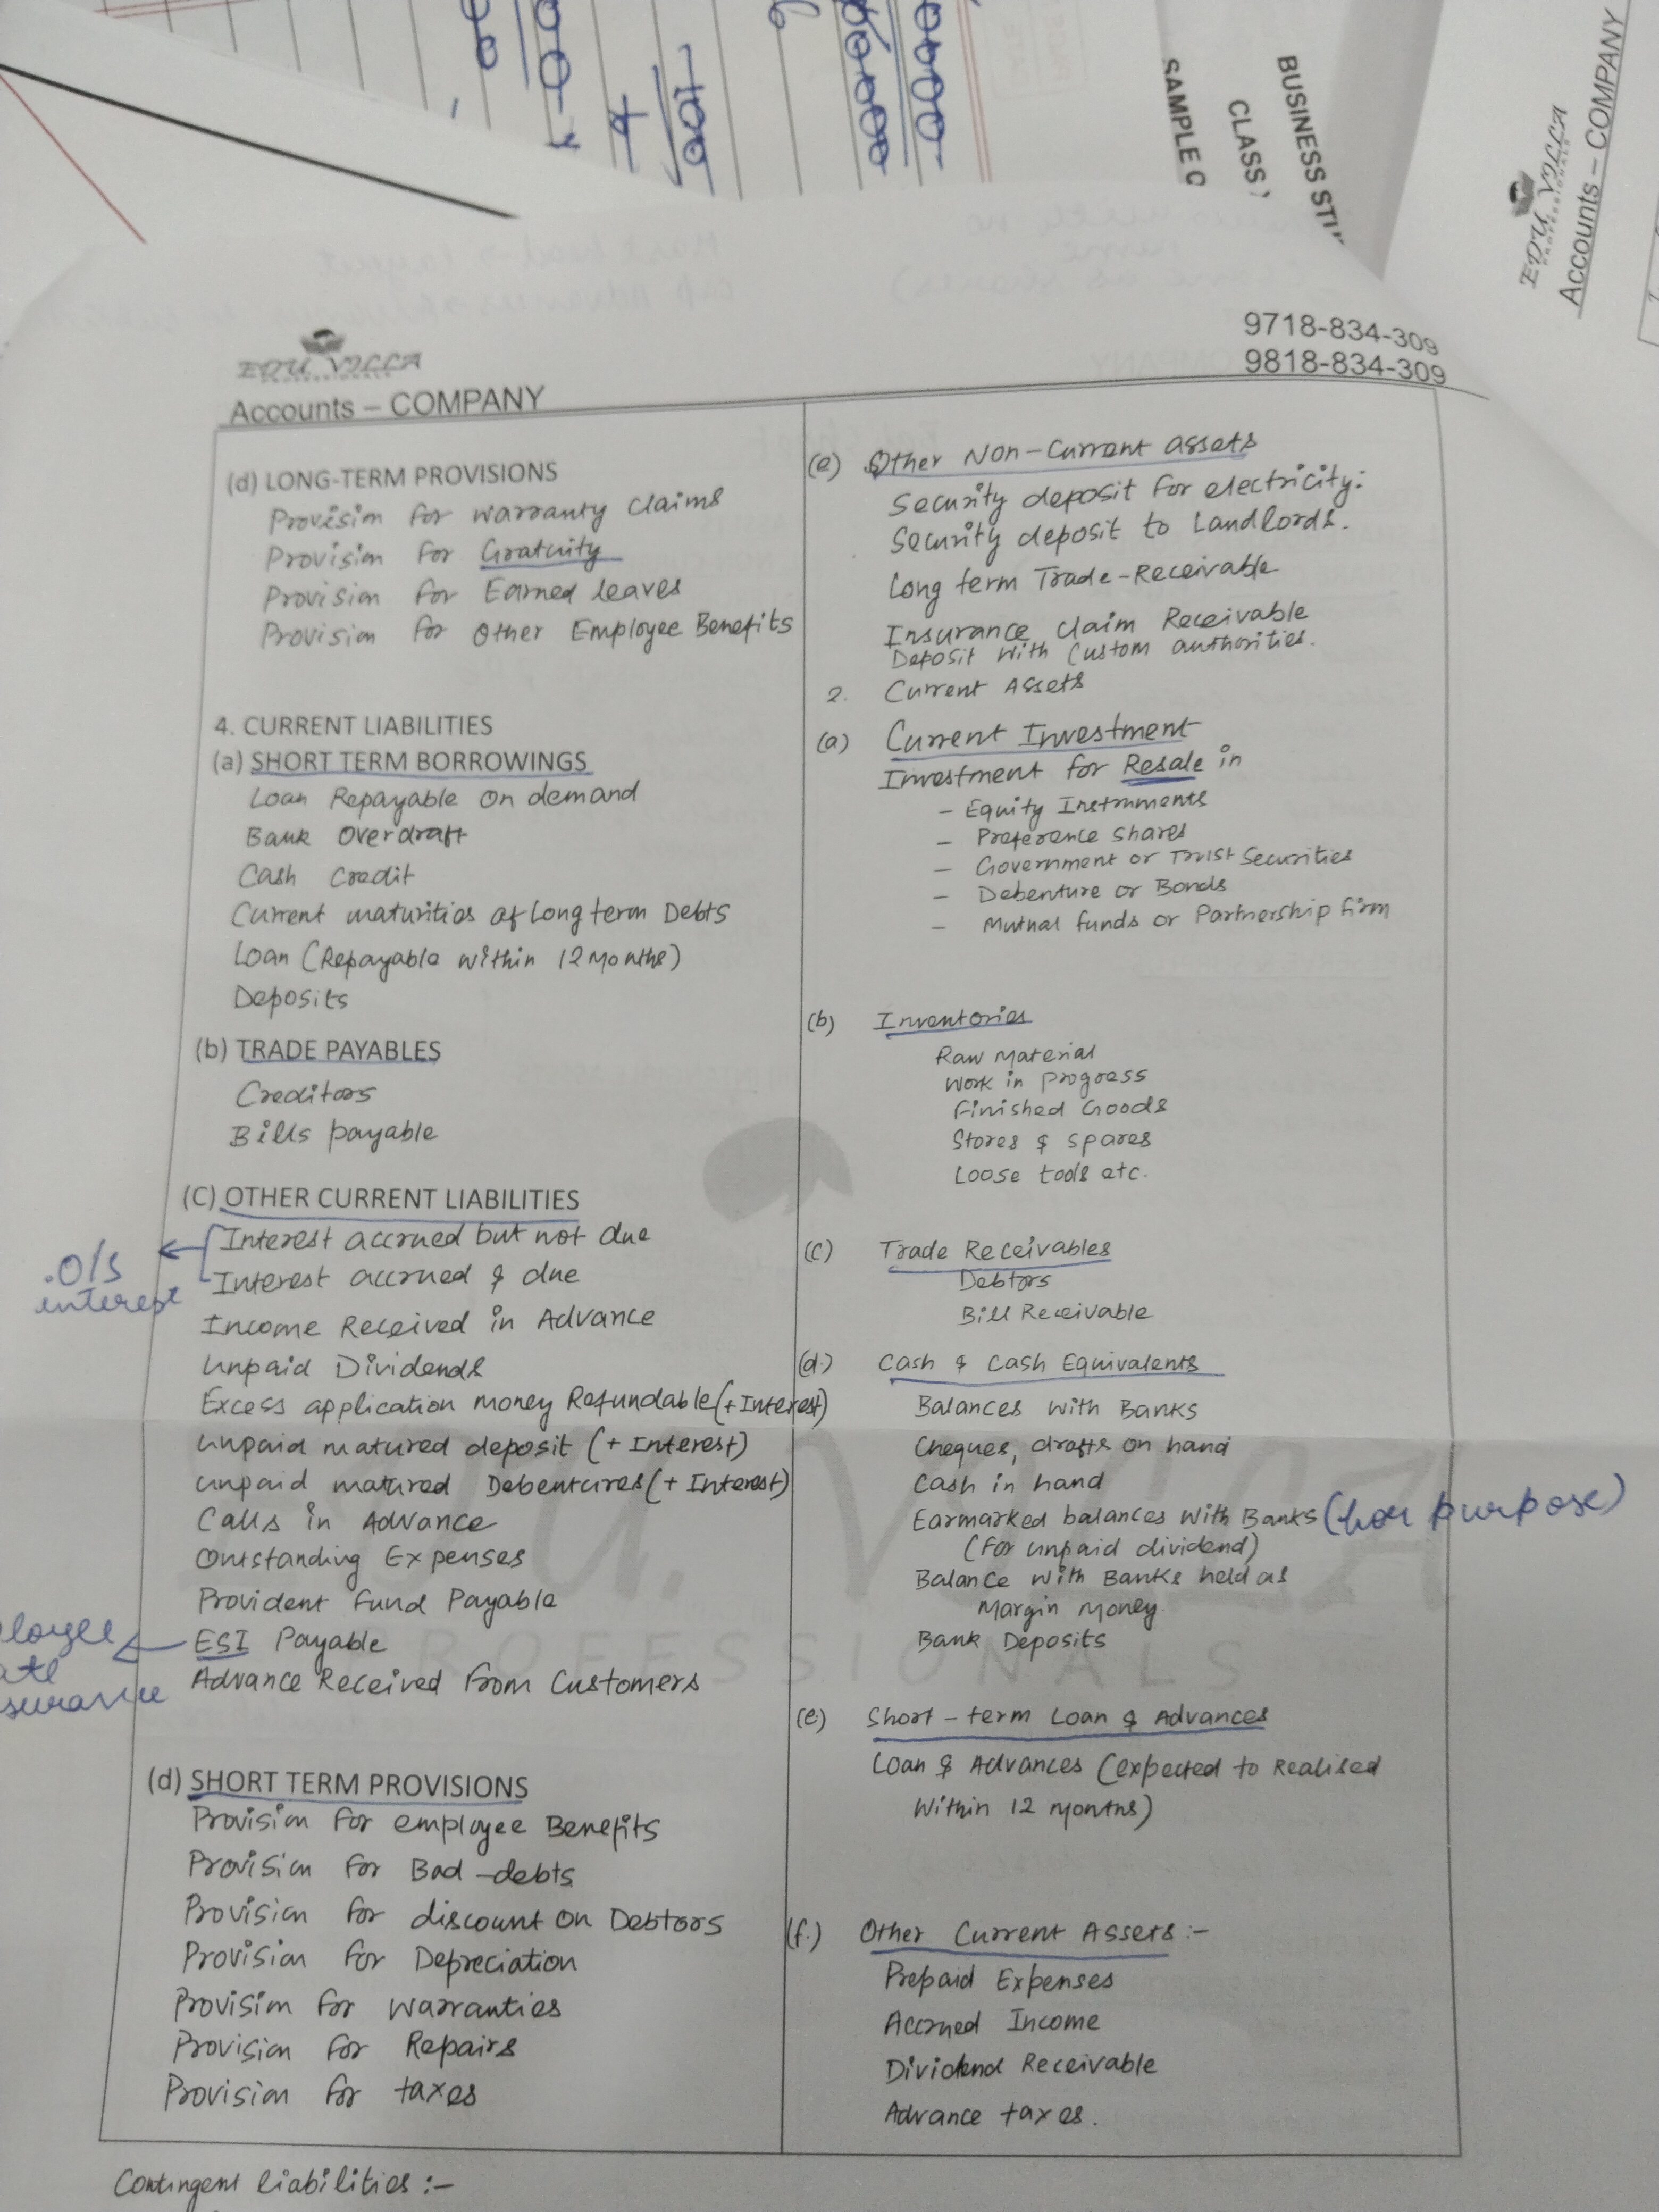 SAMPLE
CLASS
BUSINESS
EDU VILLA
PROFESSIONALS
Accounts – COMPANY
EDU VILLA
PROFESSIONALS
Accounts – COMPANY
9718-834-309
9818-834-309
(d) LONG-TERM PROVISIONS
Provision for warranty claims
Provision for Gratuity
Provision for Earned leaves
Provision for Other Employee Benefits
4. CURRENT LIABILITIES
(a) SHORT TERM BORROWINGS
Loan Repayable on demand
Bank Overdraft
Cash Credit
Current maturities of Long term Debts
Loan (Repayable within 12 Months)
Deposits
(b) TRADE PAYABLES
Creditors
Bills payable
(C) OTHER CURRENT LIABILITIES
Interest accrued but not due
Interest accrued & due
O/S
interest
Income Received in Advance
Unpaid Dividends
Excess application money Refundable (+ Interest)
Unpaid matured deposit (+ Interest)
Unpaid matured Debentures (+ Interest)
Calls in Advance
Outstanding Expenses
Provident fund Payable
ESI Payable
Advance Received from Customers
(d) SHORT TERM PROVISIONS
Provision for employee Benefits
Provision for Bad-debts
Provision for discount on Debtors
Provision for Depreciation
Provision for warranties
Provision for Repairs
Provision for taxes
(e) Other Non-Current assets
Security deposit for electricity:
Security deposit to Landlords.
Long term Trade-Receivable
Insurance claim Receivable
Deposit with Custom authorities.
2. Current Assets
(a) Current Investment
Investment for Resale in
– Equity Instruments
– Preference Shares
– Government or Trust Securities
– Debenture or Bonds
– Mutual funds or Partnership firm
(b) Inventories
Raw Material
Work in progress
Finished Goods
Stores & spares
Loose tools etc.
(c) Trade Receivables
Debtors
Bill Receivable
(d.) Cash & Cash Equivalents
Balances with Banks
Cheques, drafts on hand
Cash in hand
Earmarked balances with Banks
(for unpaid dividend)
purpose)
Balance with Banks held as
Margin money.
Bank Deposits
(e) Short-term Loan & Advances
Loan & Advances (expected to Realised
Within 12 months)
(f.) Other Current Assets :-
Prepaid Expenses
Accrued Income
Dividend Receivable
Advance taxes.
Contingent liabilities :-